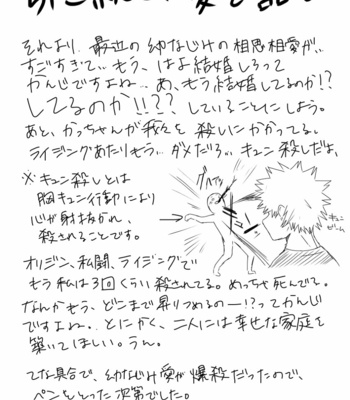 それより、最近の幼なじみの相思相愛が、、
すごすぎて、、もう、はよ結婚しろって
かんじですよね、、あ、もう結婚してるのか!?
してるのか!!?? していることにしよう。
あと、かっちゃんが我々を 殺しにかかってる。
ライジングあたりもう、、ダメだろ、、キュン殺しだよ、
※キュン殺しとは
胸キュン行動により
心が射抜かれ、
殺されることです。
グハァッ
キュン
ビーム
オリジン、私闘、ライジングで
もう私は3回くらい殺されてる。めっちゃ死んでる。
なんかもう、どこまで昇りつめるのー!?ってかんじ
ですよね、、とにかく、二人には幸せな家庭を
築いてほしい。うん。
てな具合で、幼なじみ愛が爆殺だったので、
ペンをとった次第でした。